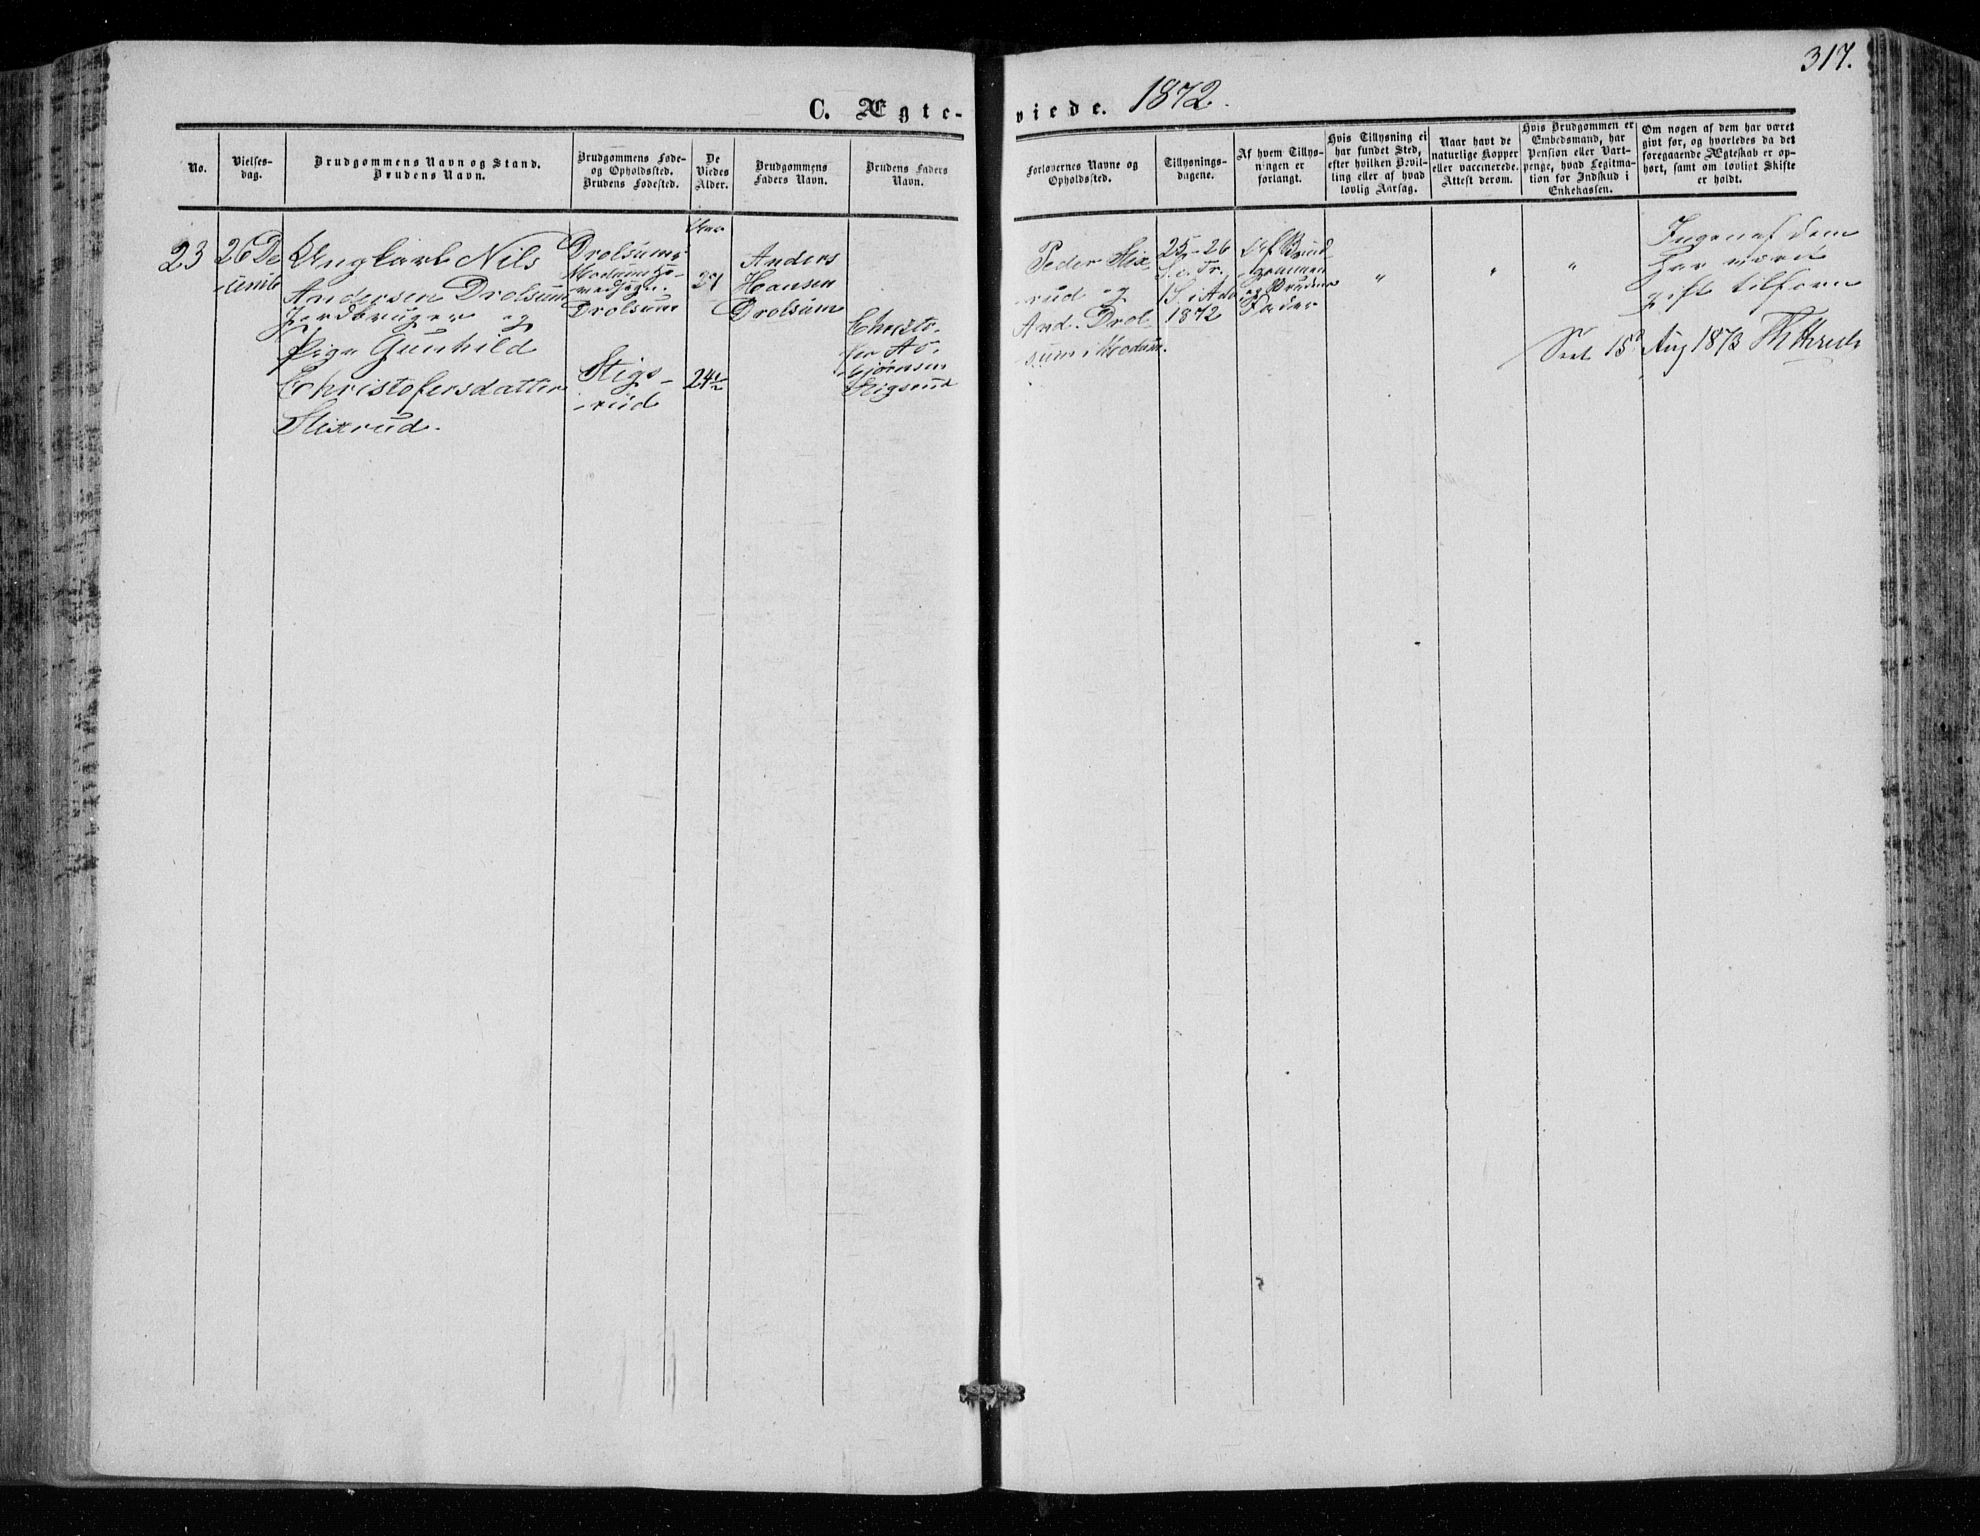 317.
C. Ægte-viede. 1872.
No.
Vielses-
dag.
Brudgommens Navn og Stand.
Brudens Navn.
Brudgommens Føde-
og Opholdssted.
Brudens Fødested.
De
Viedes
Alder.
Brudgommens
Faders Navn.
Brudens Faders
Navn.
Forlovernes Navne og
Opholdssted.
Tillysnings-
dagene.
Af hvem Tillys-
ningen er
forlangt.
Hvis Tillysning ei
har fundet Sted,
efter hvilken Bevil-
ling eller af hvad
lovlig Aarsag.
Naar havt de
naturlige Kopper
eller vaccinerede.
Attest derom.
Hvis Brudgommen er
Embedsmand, har
Pension eller Vart-
penge, hvad Legitma-
tion for Indskud i
Enkekassen.
Om nogen af dem har været
givt før, og hvorledes da det
foregaaende Ægteskab er op-
hørt, samt om lovligt Skifte
er holdt.
23
26 De
cemb
Ungkarl Nils
Andersen Drolsum
Jordbruger og
Pige Gunhild
Christofersdatter
Stixrud.
Drolsum i
Modums Ho-
vedsogn.
Drolsum
Stigs-
rud
Aar
27
24½
Anders
Hansen
Drolsum
Christo-
fer As-
bjørnsen
Stigsrud
Peder Stix-
rud og
And. Drol-
sum i Modum.
25-26
S. e. Tr.,
1 S. i Adv.
1872
Af Brud-
gommen
og Brudens
Fader
"
"
"
Ingen af dem
har været
gift tilforn
Seet 15d Aug 1873